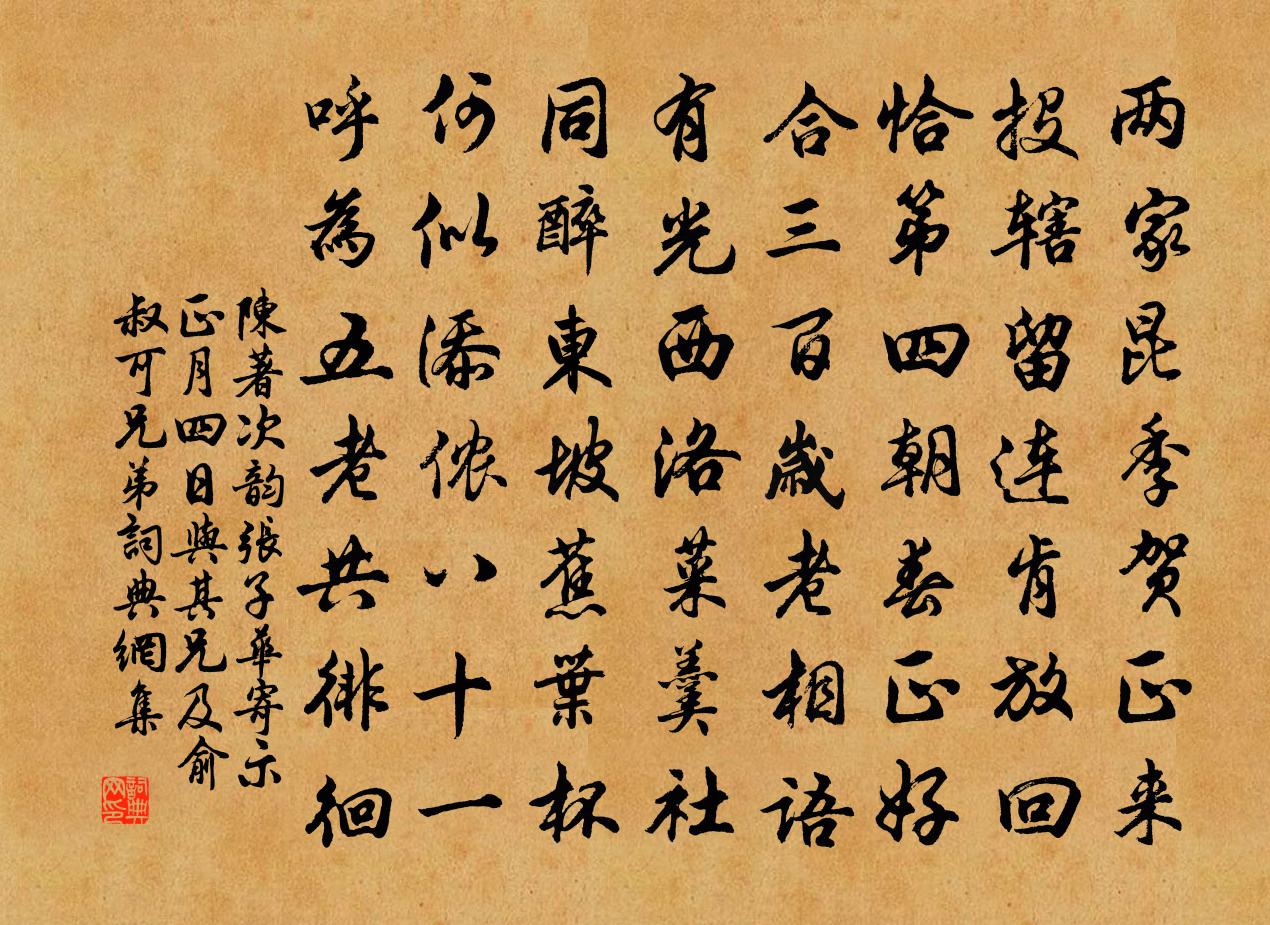 两家昆季贺正来
投辖留连肯放回
恰第四朝春正好
合三百岁老相语
有光西洛菜羹社
同醉東坡蕉葉杯
何似添侬八十一
呼為五老共徘徊
陳著次韵張子華寄示
正月四日與其兄及俞
叔可兄弟詞典網集
詞典
网印